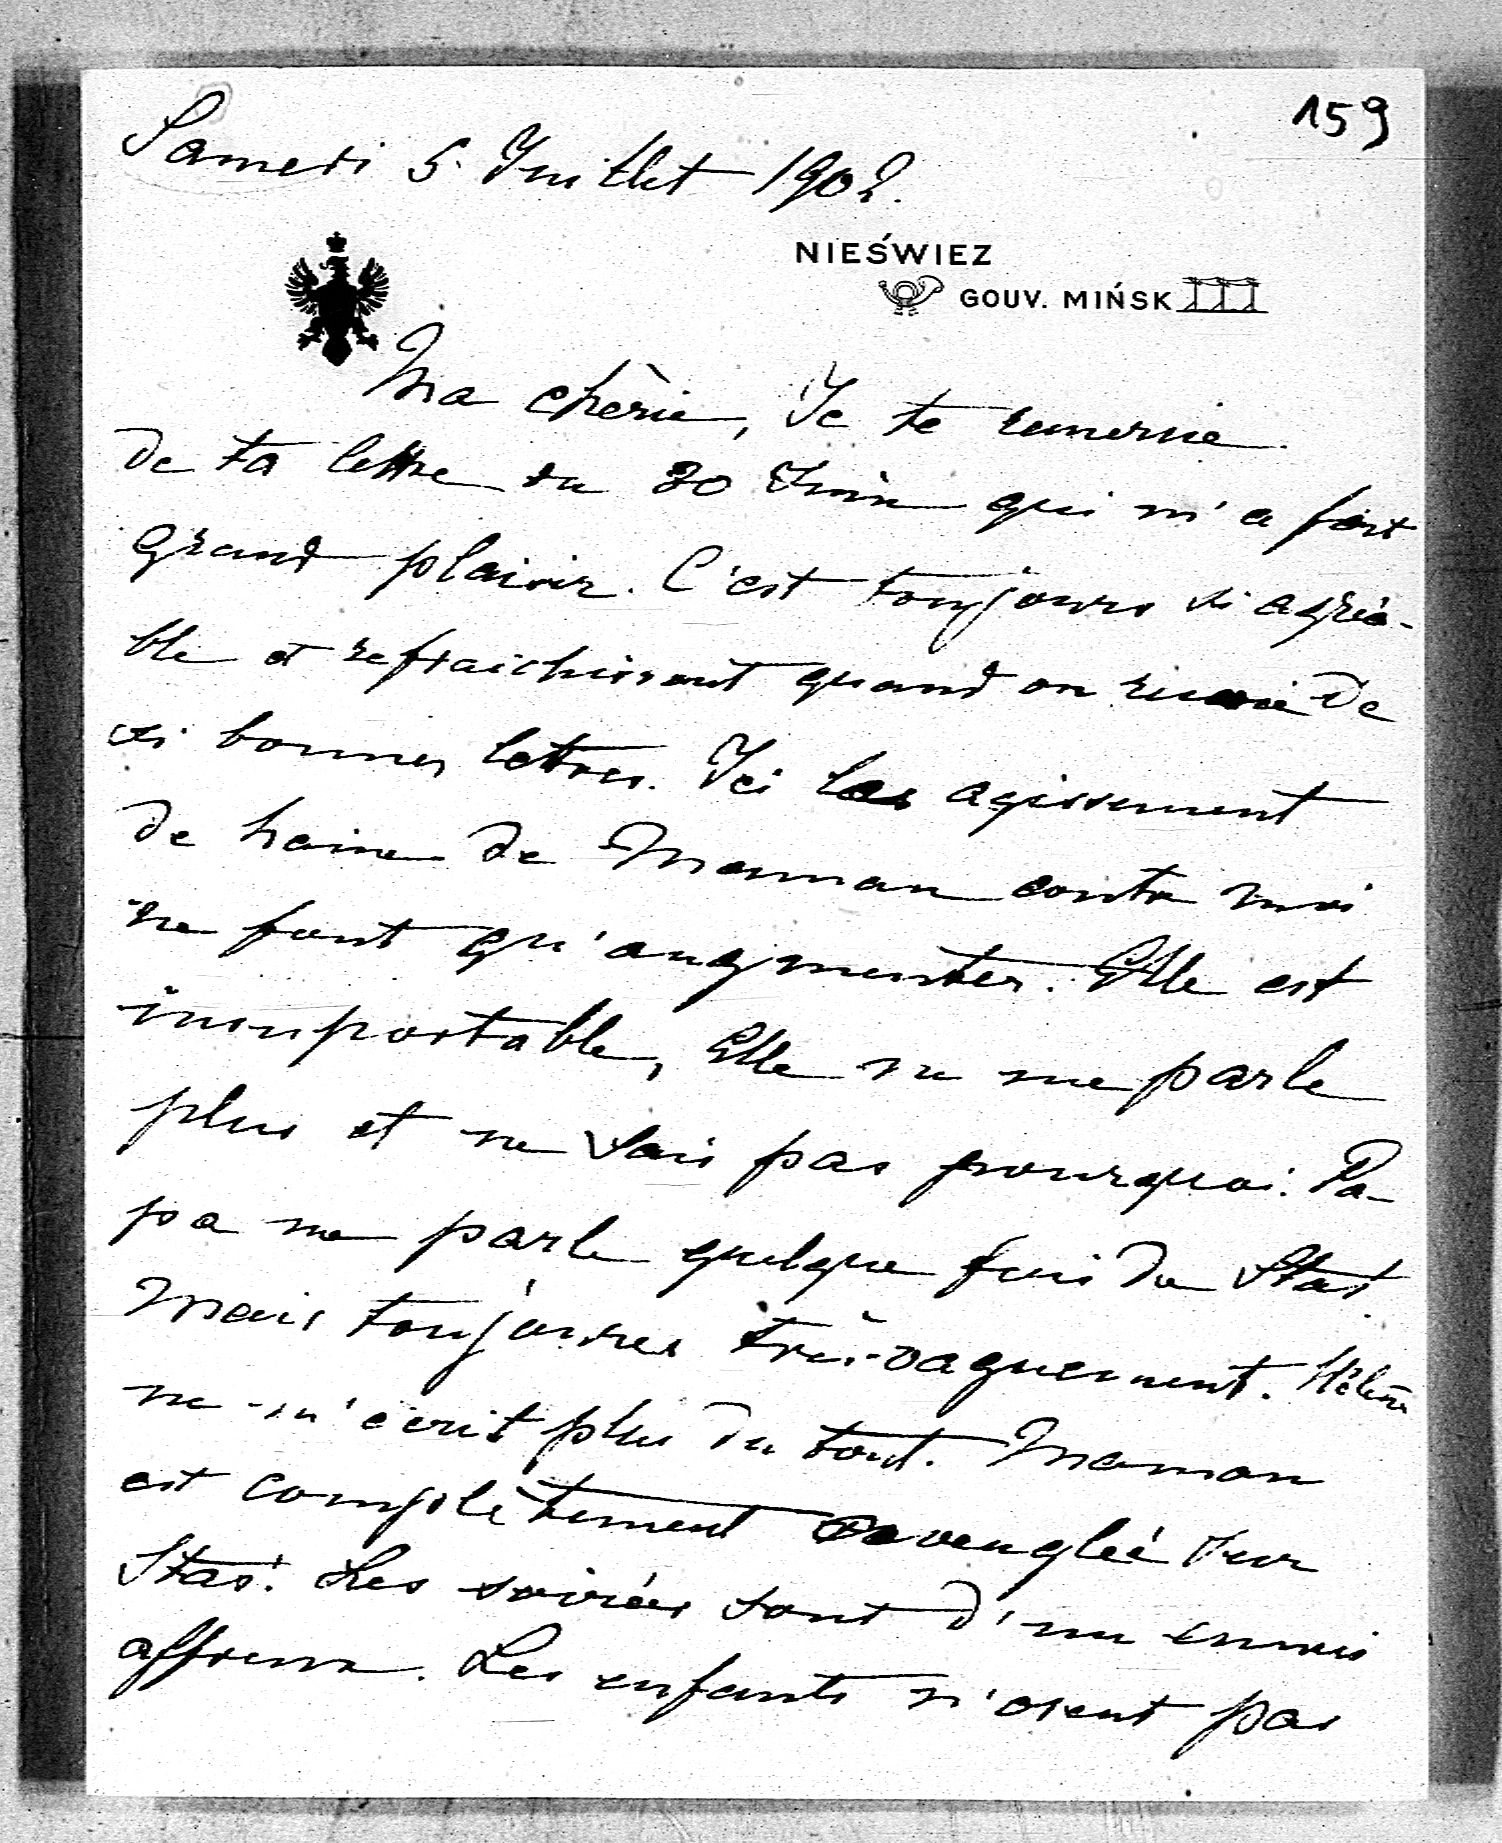 159
Samedi 5 Juillet 1902.
NIEŚWIEZ
GOUV. MIŃSK
Ma chérie, Je te remercie
de ta lettre du 30 Juin qui m'a fait
grand plaisir. C'est toujours si agréa-
ble et refraichissant quand on de
si bonnes lettres. Ici les agissement
de haine de Maman contre moi
ne font qu'augmenter. Elle est
insuportable, Elle ne me parle
plus et ne sais pas pourquoi. Pa-
pa me parle quelque fois de Staś
mais toujoures très vaguement. Hélène
ne m'écrit plus du tout. Maman
est complètement aveuglée sur
Staś. Les soirées sont d'un ennui
affreux. Les enfants n'osent pas